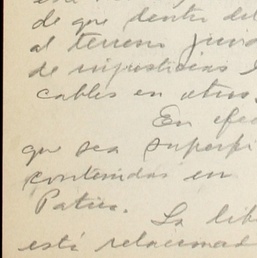 de que dentro del
al terreno
de injusticias
cables en otros
En efec
que sea superfi
contenidas en
Patria. La lib
está relacionad